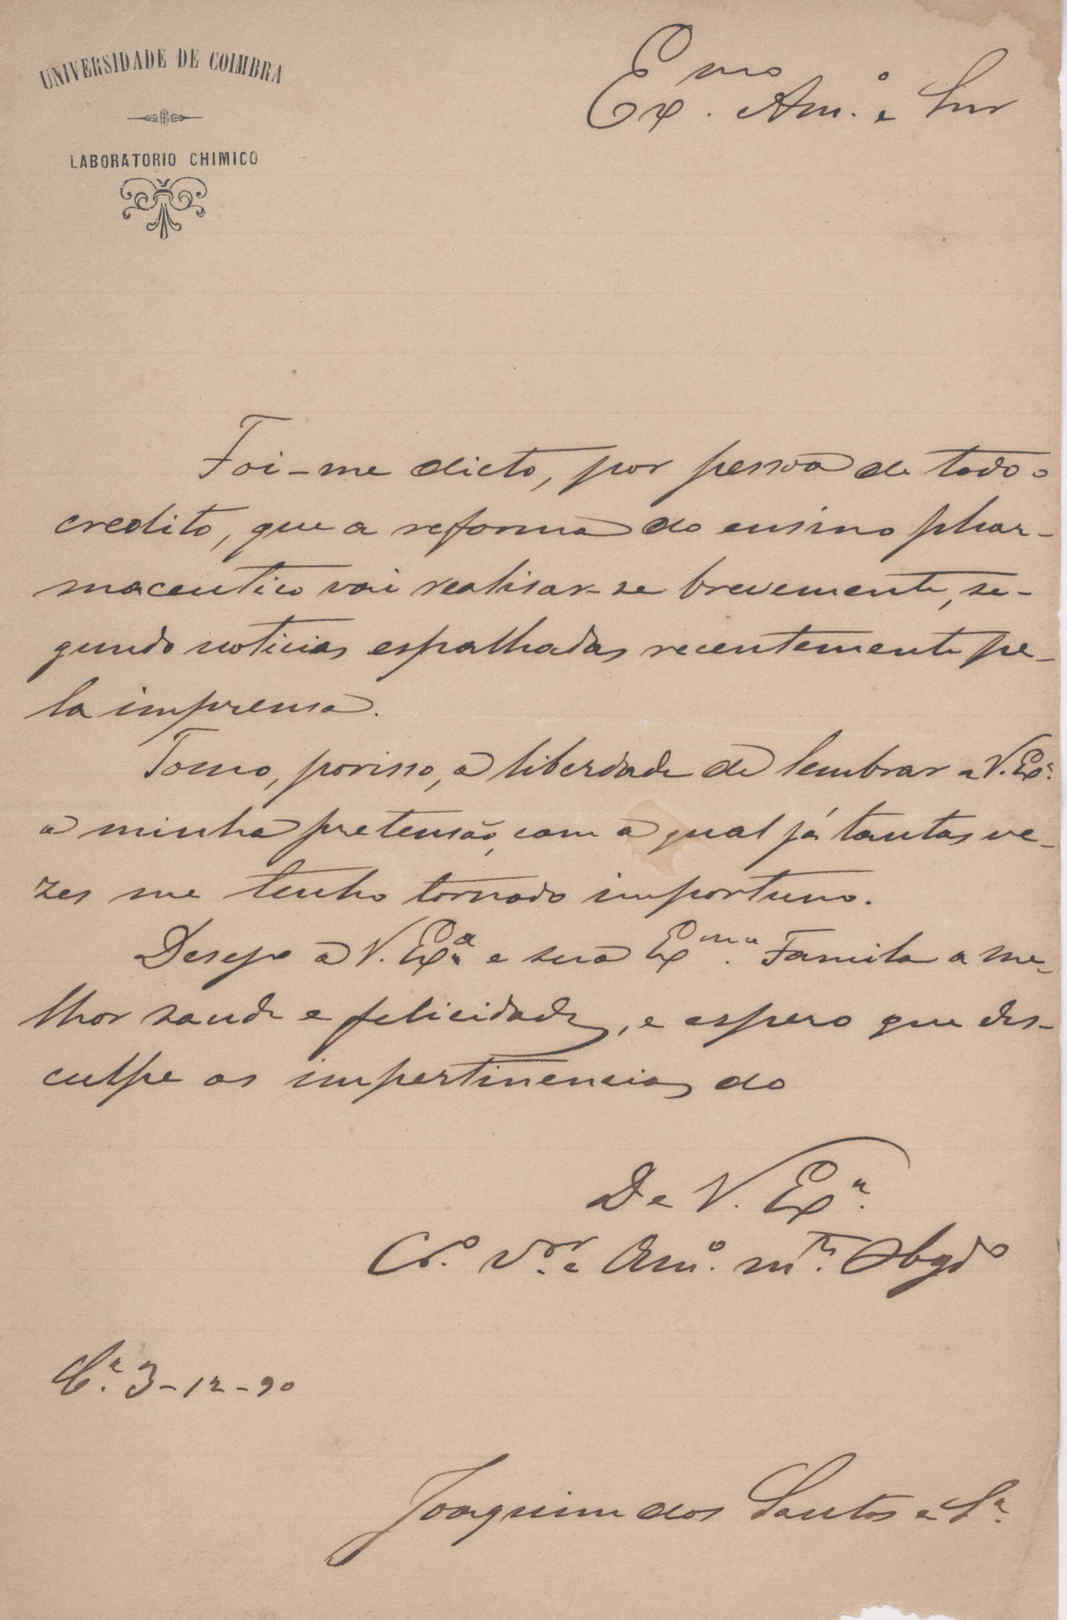 UNIVERSIDADE DE COIMBRA
LABORATORIO CHIMICO
Ex.mo Am.o e Snr
Foi-me dicto, por pessoa de todo o
credito, que a reforma do ensino phar-
maceutico vai realisar-se brevemente, se-
gundo noticias espalhadas recentemente pe-
la imprensa.
Tomo, porisso, a liberdade de lembrar a V. Ex.a
a minha pretensão, com a qual já tantas ve-
zes me tenho tornado importuno.
Desejo a V. Ex.a e sua Ex.ma Familia a me-
lhor saude e felicidade, e espero que des-
culpe as impertinencias do
De V. Ex.a
Cr.o V.or e Am.o m.to Obgdo
C.a 3-12-90
Joaquim dos Santos e S.a